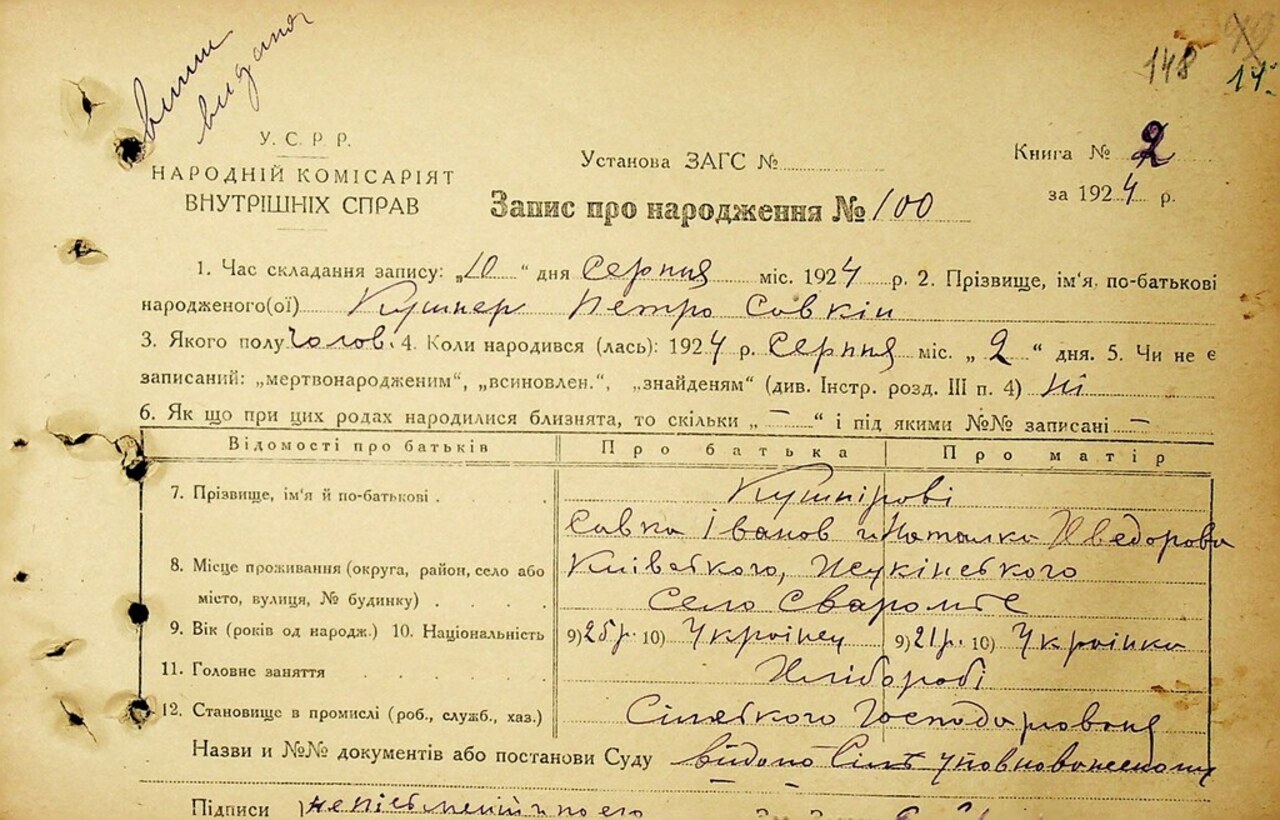 148
14
У. С. Р. Р.
НАРОДНІЙ КОМІСАРІЯТ
ВНУТРІШНІХ СПРАВ
Установа ЗАГС №
Книга № 2
за 1924 р.
Запис про народження № 100
1. Час складання запису: „10“ дня Серпня міс. 1924 р. 2. Прізвище, ім'я, по-батькові
народженого(ої) Кушнер Петро Савкін
3. Якого полу Чолов. 4. Коли народився (лась): 1924 р. Серпня міс. „2“ дня. 5. Чи не є
записаний: „мертвонародженим“, „всиновлен.“, „знайденям“ (див. Інстр. розд. III п. 4) Ні
6. Як що при цих родах народилися близнята, то скільки „—“ і під якими №№ записані —
Відомості про батьків Про батька Про матір
7. Прізвище, ім'я й по-батькові Кушнірові
Савка Іванов и Наталка Хведорова
8. Місце проживання (округа, район, село або Київского,
місто, вулиця, № будинку) Село Сваромье
9. Вік (років од народж.) 10. Національність 9) 25 р. 10) Українец 9) 21 р. 10) Українка
11. Головне заняття Хлібороби
12. Становище в промислі (роб., служб., хаз.) Сільского
Назви и №№ документів або постанови Суду
Підписи